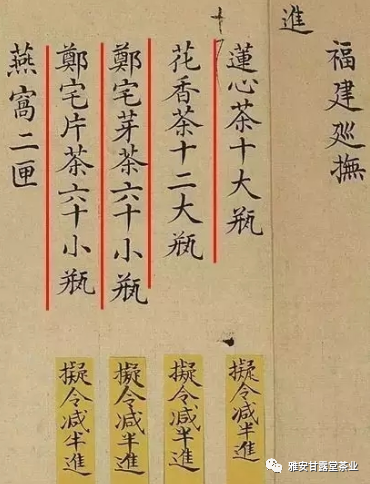 福建廵撫
進
蓮心茶十大瓶
花香茶十二大瓶
鄭宅芽茶六十小瓶
鄭宅片茶六十小瓶
燕窩二匣
擬令减半進
擬令减半進
擬令减半進
擬令减半進
雅安甘露堂茶业